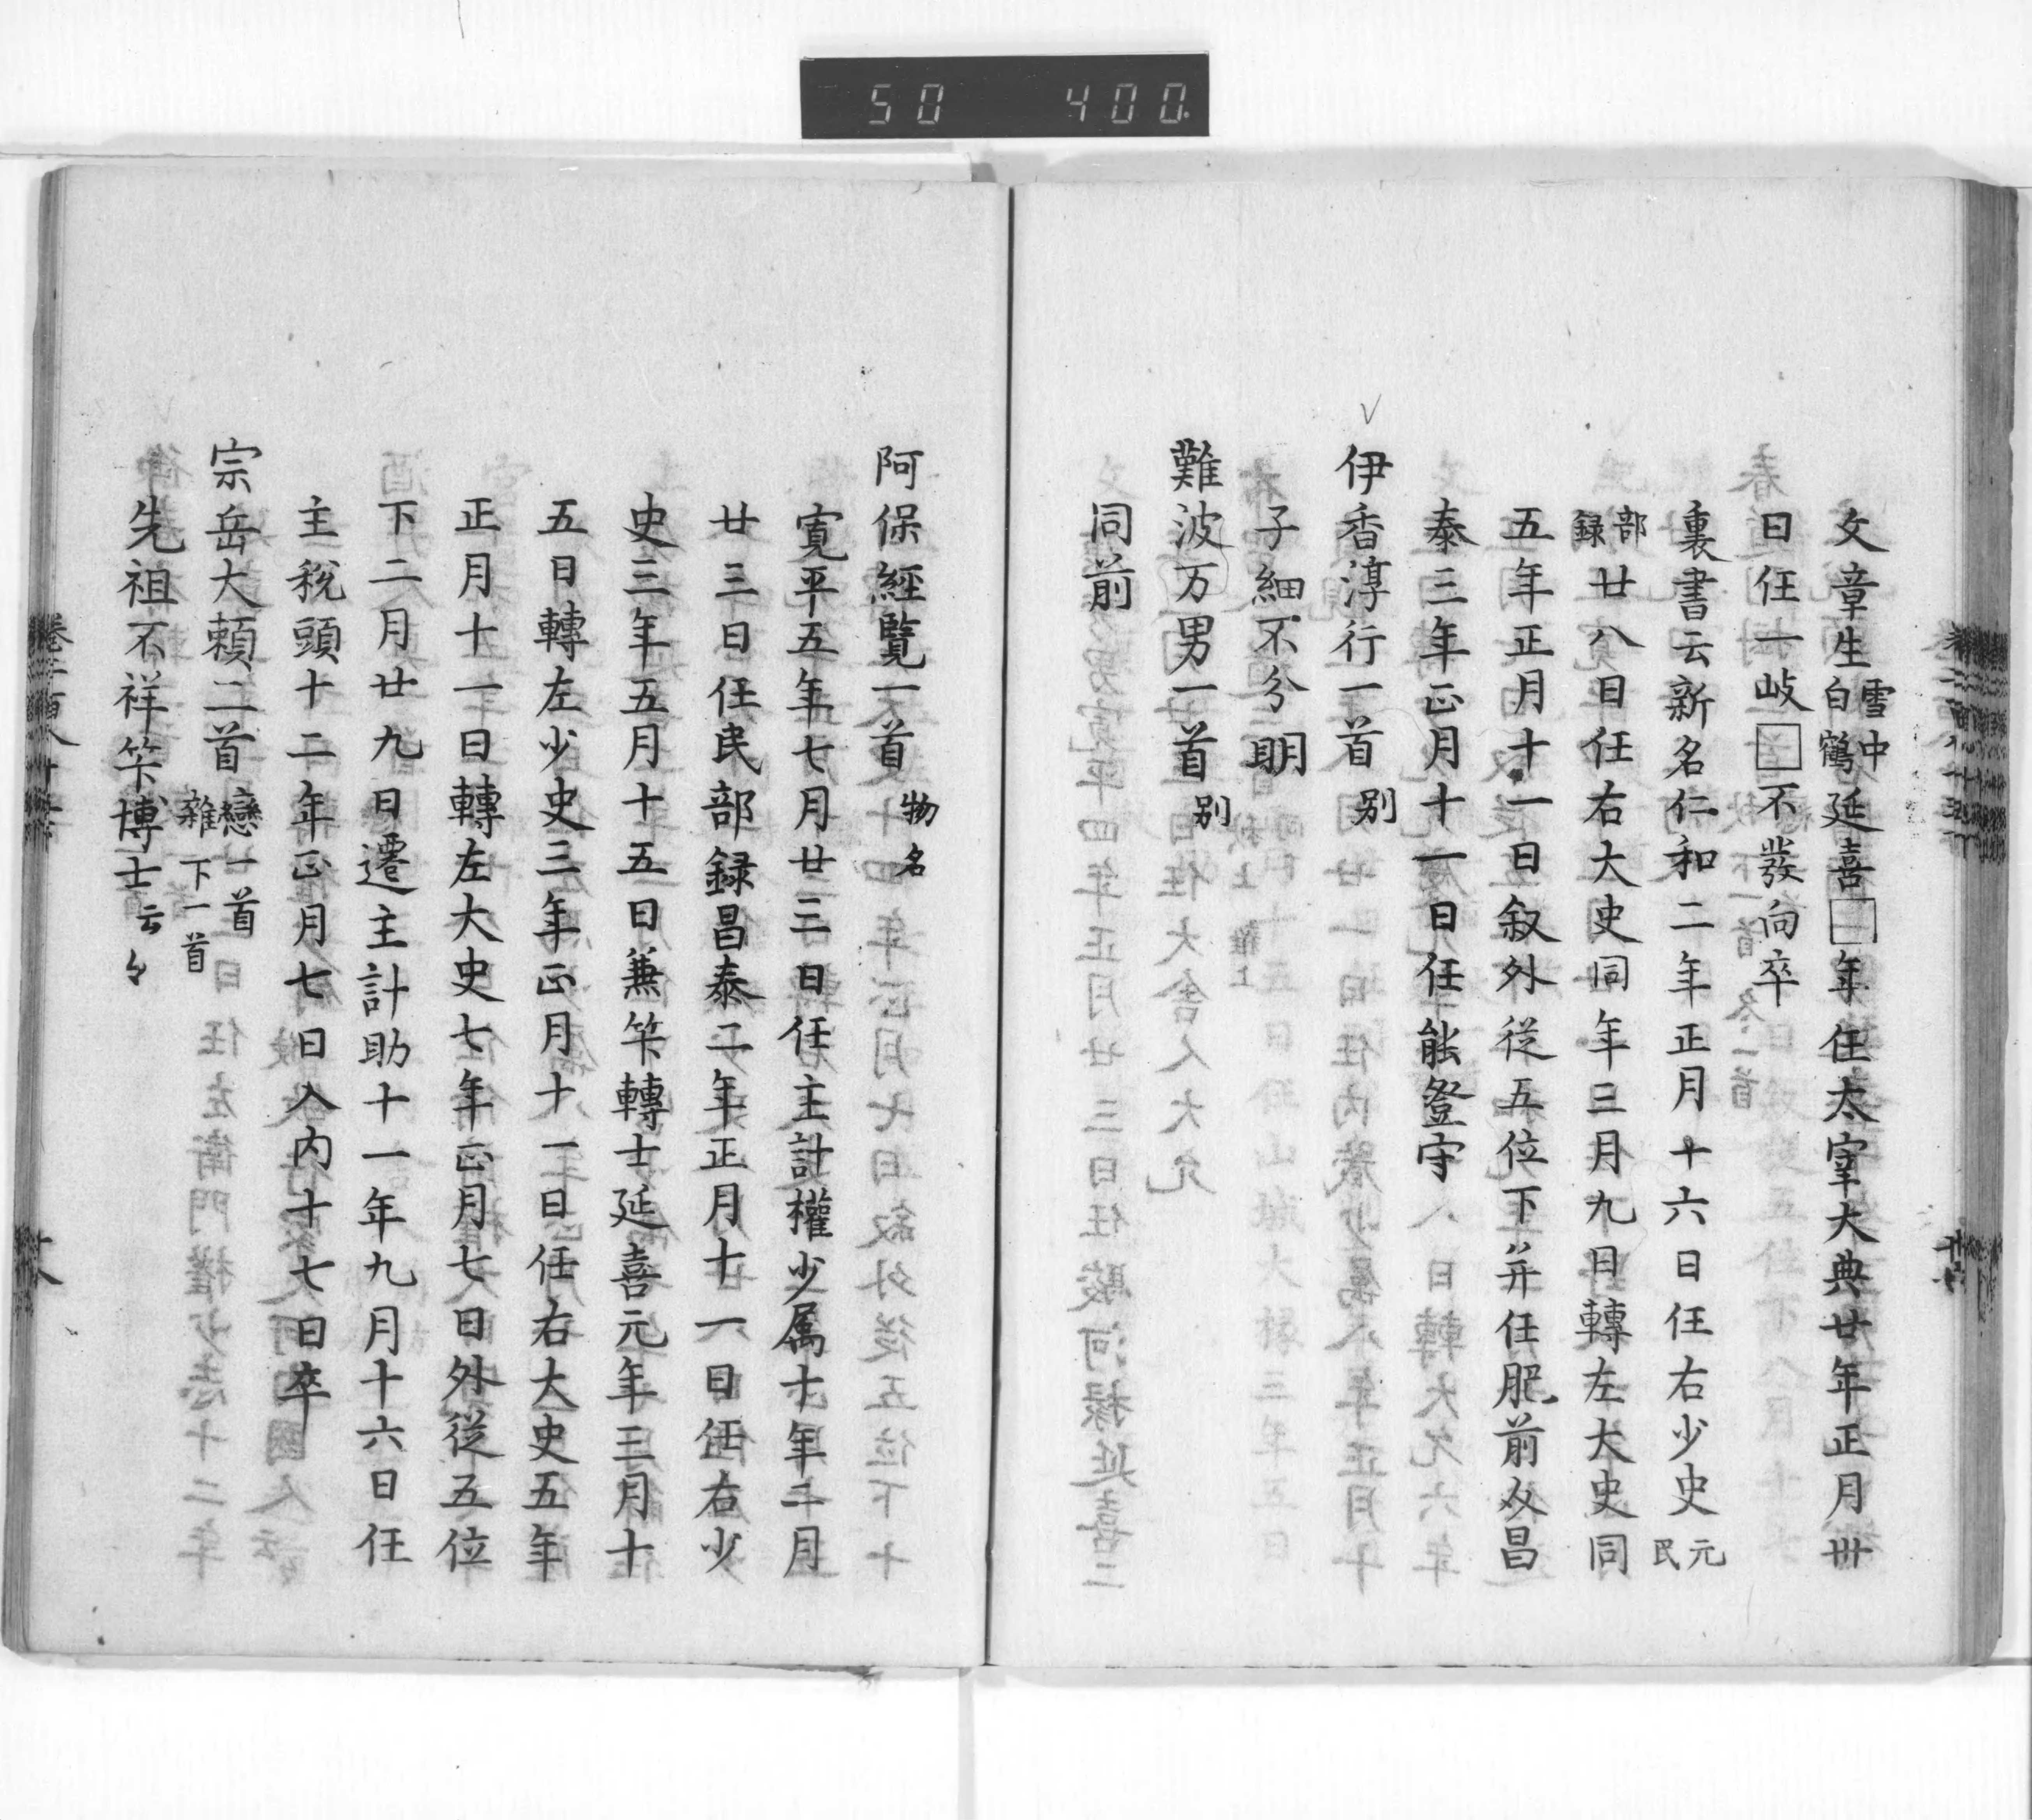 50 400
文章生雪中白鶴延喜□年任太宰大典廿年正月卅
日任一岐□不發向卒
裏書云新名仁和二年正月十六日任右少史元民
部録廿八日任右大史同年三月九日轉左大史同
五年正月十一日叙外從五位下并任肥前介昌
泰三年正月十一日任能登守
伊香淳行一首別
子細不分明
難波万男一首別
同前
阿保經覧一首物名
寛平五年七月廿三日任主計權少属十年二月
廿三日任民部録昌泰二年正月十一日任右少
史三年五月十五日兼笇轉士延喜元年三月十
五日轉左少史三年正月十一日任右大史五年
正月十一日轉左大史七年正月七日外從五位
下二月廿九日遷主計助十一年九月十六日任
主税頭十二年正月七日入内十七日卒
宗岳大頼二首戀一首雜下一首
先祖不祥笇博士云々